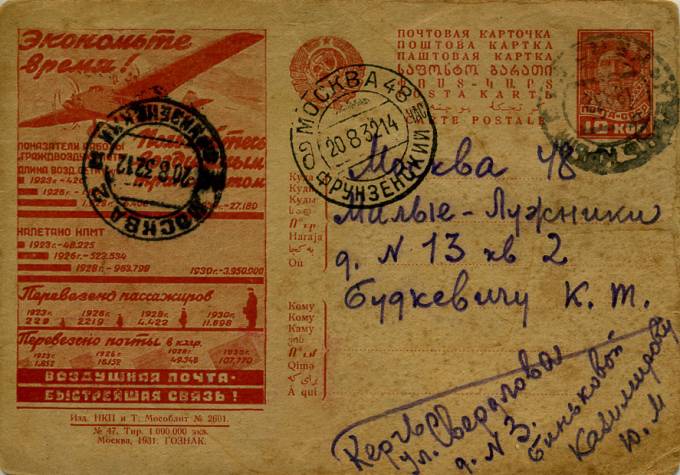 Экономьте
время!
Пользуйтесь
воздушным
транспортом
ПОКАЗАТЕЛИ РАБОТЫ
ГРАЖДВОЗДУХ
ДЛИНА ВОЗД.
1923г.-420
1926г.-
1928г.-
-27.180
НАЛЕТАНО КЛМТ
1923г.-48.225
1926г.-523.534
1928г.-963.798
1930г.-3.950.000
Перевезено пассажиров
1923г. 1926г. 1928г. 1930г.
229 2219 4.422 11.698
Перевезено почты в клгр.
1923г. 1926г. 1928г. 1930г.
1.852 16.152 49.348 107.770
ВОЗДУШНАЯ ПОЧТА-
БЫСТРЕЙШАЯ СВЯЗЬ!
Изд. НКП и Т. Мособлит № 2601.
№ 47. Тир. 1 000.000 экз.
Москва, 1931. ГОЗНАК.
ПОЧТОВАЯ КАРТОЧКА
ПОШТОВА КАРТКА
ПАШТОВАЯ КАРТКА
POSTA KARTЬ
CARTE POSTALE
ПОЧТА СССР
10 КОП
МОСКВА 48
20.8.32 14
ФРУНЗЕНСКИЙ
МОСКВА
20.8.32 12
Куда
Куди
Куды
Haraja
Où
Кому
Кому
Каму
Qima
À qui
Москва 48
Малые-Лужники
д. N 13 кв 2
Будкевичу К. Т.
Керчь
ул. Свердлова
д. N 3.
Биньковой
Казимирову
Ю. М